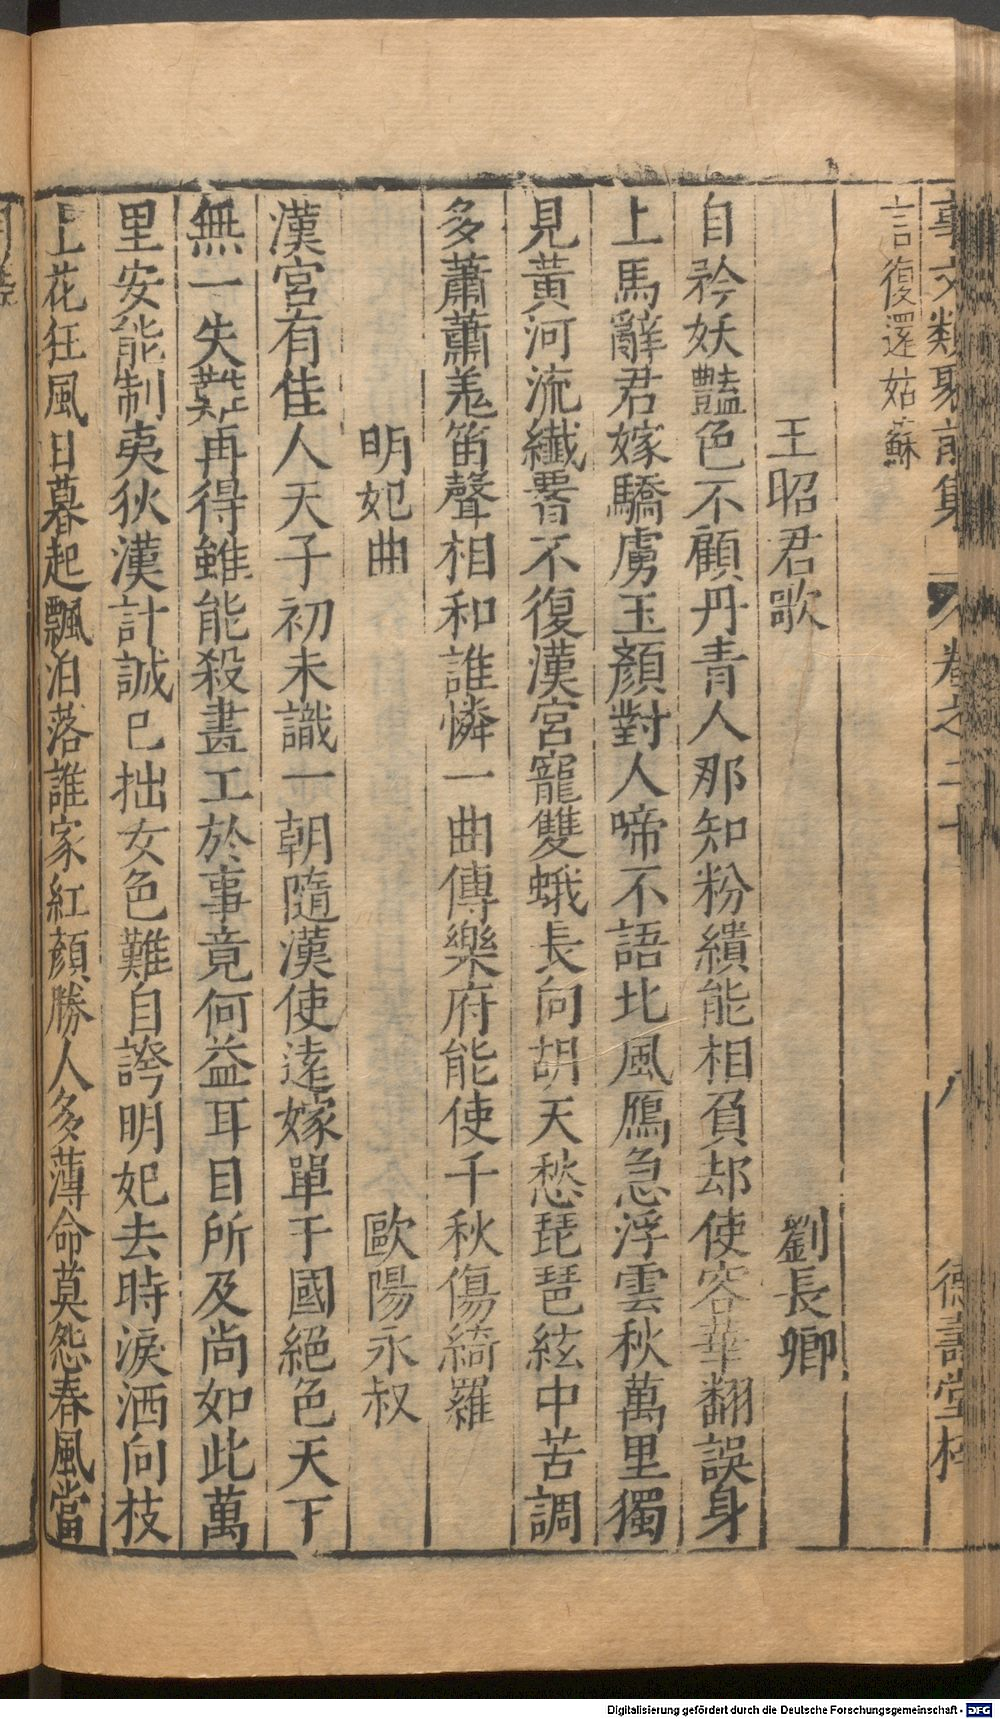 事文類聚前集 卷之二十 八 德壽堂梓
言復還姑蘇
王昭君歌 劉長卿
自矜妖豔色不顧丹青人那知粉繢能相負却使容華翻誤身
上馬辭君嫁驕虜玉顏對人啼不語北風鴈急浮雲秋萬里獨
見黃河流纖署不復漢宮寵雙蛾長向胡天愁琵琶絃中苦調
多蕭蕭羌笛聲相和誰憐一曲傳樂府能使千秋傷綺羅
明妃曲 歐陽永叔
漢宮有佳人天子初未識一朝隨漢使遠嫁單于國絕色天下
無一失難再得雖能殺畫工於事竟何益耳目所及尚如此萬
里安能制夷狄漢計誠已拙女色難自誇明妃去時淚洒向枝
上花狂風日暮起飄泊落誰家紅顏勝人多薄命莫怨春風當
Digitalisierung gefördert durch die Deutsche Forschungsgemeinschaft - DFG